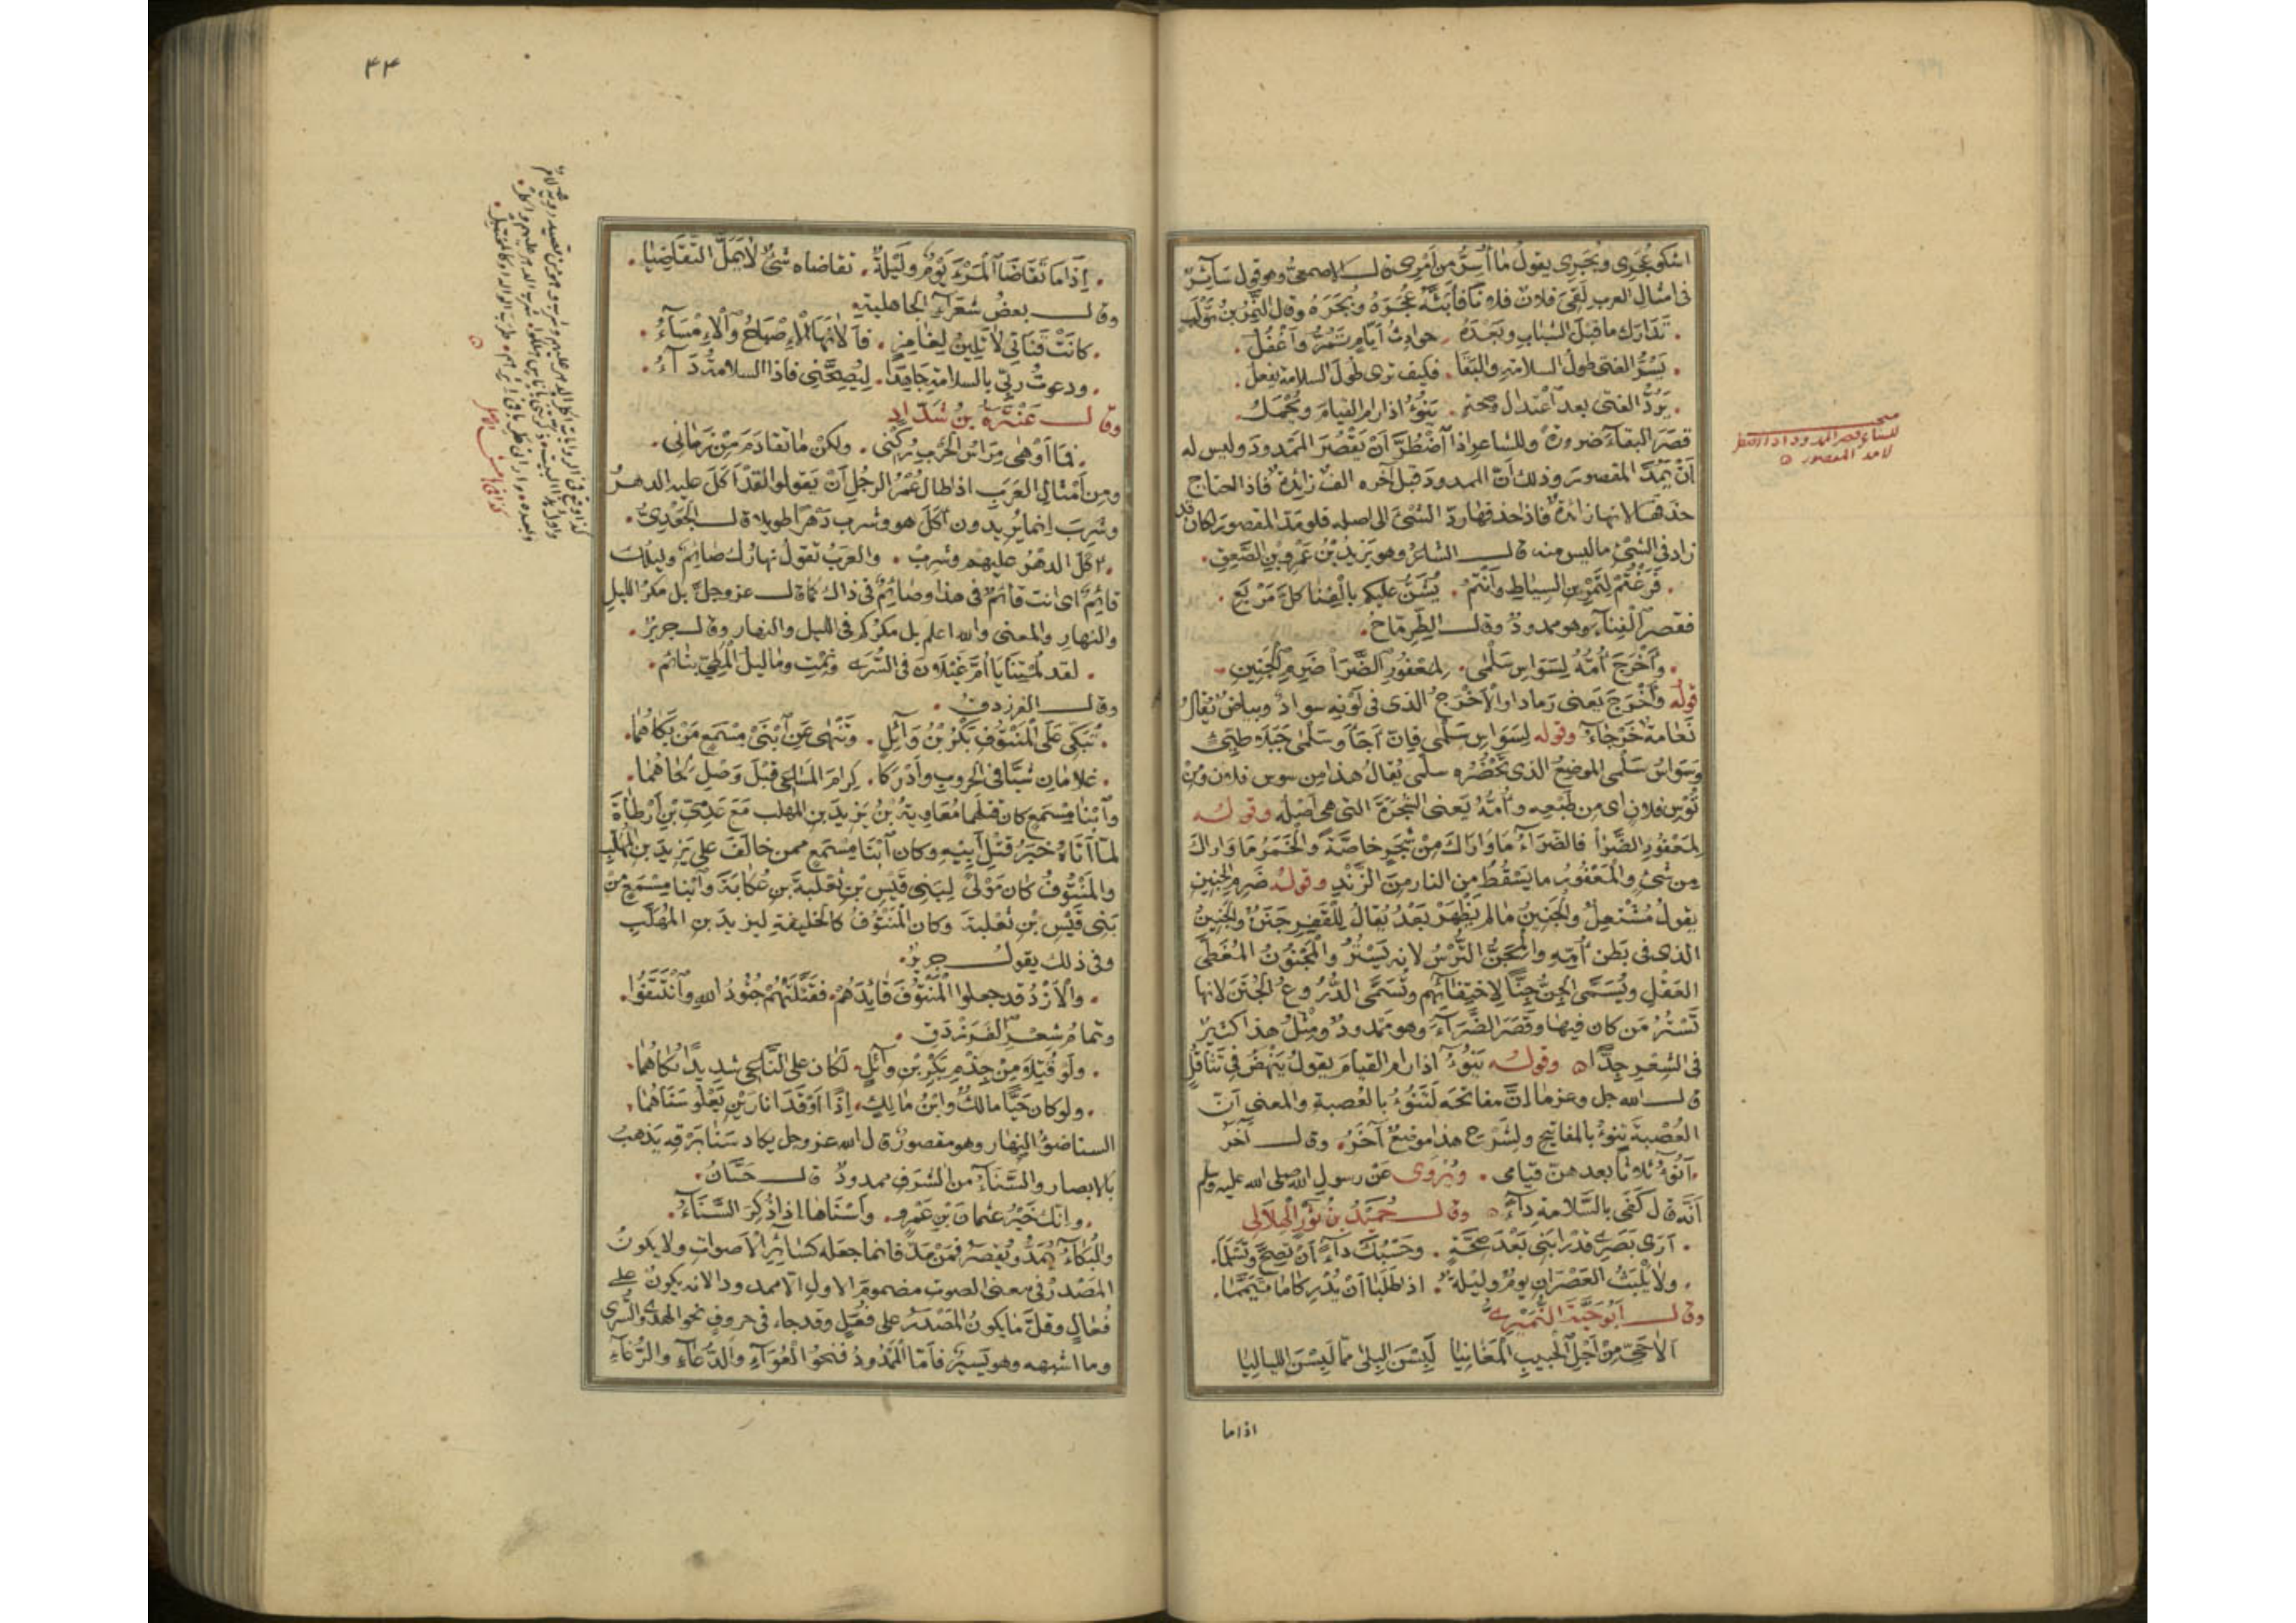 اشكو عُجَرِى وبُجَرِى يقول ما أُسِرُّ من أَمْرِى قال الاصمعىُّ وهو قول سَآئِرٌ
فى امثال العرب لَقِىَ فلان فلانًا فأَبَثَّهُ عُجَرَهُ وبُجَرَهُ وقال النَّمِرُ بن تَوْلَبٍ
تَدَارَكَ ما قبلَ الشبابِ وبَعْدَهُ حوادثُ أيَّامٍ تَمُرُّ وأَغْفُلُ
يَسُرُّ الفتى طولُ السلامةِ والبَقَا فكيف ترى طولَ السلامة يفعلُ
يَرُدُّ الفتى بعد اعْتدالٍ وصحةٍ يَنُوْءُ اذا رام القيامَ ويُحْمَلُ
قصَرَ البقاءَ ضرورةً وللشاعر اذا اضْطُرَّ أنْ يَقْصُرَ الممدودَ وليس له
أنْ يَمُدَّ المقصورَ وذلك أنّ الممدودَ قبل آخره الفٌ زائدةٌ فاذا احتاج
حذفها لانها زائدةٌ فاذا حذفها ردّ الشئَ الى اصله فلو مَدَّ المقصورَ لكان قد
زاد فى الشئِ ما ليس منه قال الشاعرُ وهو يزيدُ بْنُ عَمْرِو بْنِ الصَّعِقِ
فَرَغْتُمْ لِتَمْرِينِ السِّيَاطِ وأنْتُمْ يُشَنُّ عليكم بالفِنَا كلَّ مَرْبَعِ
فقصرَ الْفِنَآءَ وهو ممدودٌ وقال الطِّرِمّاحُ
وأَخْرَجَ أُمُّهُ لِسَوَاسِ سَلْمَى لِمَعْفُورِ الضَّرَا ضَرِمِ الجَنِينِ
قولُه وأَخْرَجَ يَعنى رَمادا والأَخْرَجُ الذى فى لَوْنِه سوادٌ وبياضٌ يُقالُ
نَعَامةٌ خَرْجَآءُ وقوله لِسَوَاسِ سَلْمَى فإنّ أَجَأً وسَلْمَى جَبَلا طيّئ
وسَوَاسُ سَلْمَى الموضعُ الذى بحَضْرِه سلْمى يُقالُ هذا من سوسِ فلان ومِنْ
تُوْسِ فلانٍ اى من طبْعِه وأُمُّهُ يَعنى الشجَرَةَ التى هى أَصْلُه وقولُه
لِمَعْفُورِ الضَّرَا فالضَّرَآءُ ما وَارَاكَ مِنْ شَجَرٍ خاصَّةً والخَمَرُ ما وَاراكَ
مِن شئٍ والمَعْفُورُ ما يَسْقُطُ من النارِ مِنَ الزَّنْدِ وقولُه ضَرِمِ الجَنِينِ
يقولُ مُشْتعِلٌ والجَنِينُ ما لم يَظْهَرْ بَعْدُ يُقالُ لِلْقَبرِ جَنَنٌ والجَنِينُ
الذى فى بَطن أُمِّهِ والمِجَنُّ التُّرْسُ لانه يَسْتُرُ والْمَجْنُونُ المُغَطَّى
العَقْلِ ويُسَمَّى الجِنُّ جِنًّا لِاخْتِفَآئِهِم وتُسَمَّى الدُّرُوعُ الجُنَنَ لانها
تَسْتُرُ مَن كان فيها وقَصَرَ الضَّرَآءَ وهو مَمْدودٌ ومِثْلُ هذا كثيرٌ
فى الشِّعْرِ جِدًّا وقولُه يَنُوْءُ اذا رام القيامَ يقولُ يَنْهَضُ فى تَثَاقُلٍ
قال الله جل وعز ما إنَّ مفاتحَه لَتَنُوْءُ بالعُصبةِ والمعنى أنّ
العُصْبةَ تنوءُ بالمفاتيحِ ولِشَرْحِ هذا موضعٌ آخَرُ وقال آخَرُ
أنُوْءُ ثلاثًا بعدهنّ قيامى ويُرْوى عَنْ رسولِ اللّٰه صلى الله عليه وسلم
أنَّه قال كَفَى بالسَّلامةِ داءً وقال حُمَيْدُ بنُ ثَوْرٍ الهِلَالِى
أَرَى بَصَرِى قدْ رابَنِى بَعْدَ صِحَّةٍ وحَسْبُكَ داءً أنْ تَصِحَّ وتَسْلَمَا
ولا يَلْبَثُ العَصْرانِ يومٌ وليلةٌ اذا طلَبَا أنْ يُدْرِكا ما تَيَمَّمَا
وقال أبُو حَيَّةَ النُّمَيْرِىُّ
أَلاحَىِّ مِنْ أَجْلِ الحبيبِ المَغَانِيَا لَبِسْنَ البِلَى مِمّا لَبِسْنَ اللياليَا
اذا ما
للشاعر قصر الممدود اذا اضطر
لا مد المقصور
۴۴
إِذَا مَا تَقَاضَا الْمَرْءَ يَوْمٌ ولَيْلَةٌ تقاضاه شئٌ لا يَمَلُّ التَّقَاضِيَا
وقال بعضُ شُعَرَآءِ الجاهلية
كانَتْ قَناتِى لا تَلِينُ لِغَامِزٍ فأَلانَهَا الإِصْبَاحُ والْإِمْسَآءُ
ودعوتُ ربِّى بالسلامةِ جاهِدًا لِيُصِحَّنِى فاذا السلامةُ دَآءُ
وقال عَنْتَرَةُ بْنُ شَدّادٍ
فمَا أوْهَى مِرَاسُ الحَرْبِ رُكْنِى ولكنْ ما تقادَمَ مِنْ زَمانِى
ومِن أمْثالِ العَرَبِ اذا طال عُمُرُ الرجُلِ أنْ يَقولوا لقدْ أكَلَ عليه الدهرُ
وشَرِبَ إنما يُريدون أكَلَ هو وشرب دَهْرًا طويلا قال الجَعْدِىُّ
أكَلَ الدهْرُ عليهم وشَرِبْ والعَرَبُ تقولُ نهارُكَ صائِمٌ وليلُكَ
قائِمٌ اى انت قائمٌ فى هذا وصائِمٌ فى ذاك كما قال عز وجلّ بل مكرُ الليلِ
والنهارِ والمعنى والله اعلم بل مكرُكم فى الليل والنهار وقال جريرٌ
لقد لُمْتِنَا يا أُمَّ غَيْلانَ فى السُّرَى ونِمْتِ وما ليلُ المَطِىِّ بنائِمِ
وقال الفرزدق
تُبَكِّى عَلَى المَنْتُوفِ بَكْرُ بْنُ وَآئِلٍ وتَنْهَى عَنِ ابْنَىْ مِسْمَعٍ مَنْ بَكَاهُمَا
غلامانِ شَبَّا فى الحروبِ وأَدْرَكَا كِرَامَ المَسَاعِى قبْلَ وَصْلِ لِحَاهُمَا
وابْنَا مِسْمَعٍ كان قتلَهما مُعَاوِيةُ بْنُ يَزيدَ بنِ المُهلَّب مَعَ عَدِىِّ بْنِ أَرْطَاةَ
لمّا أتَاهُ خَبَرُ قتْلِ أبيهِ وكان ابْنَا مِسْمَعٍ ممن خالَفَ على يَزيدَ بنِ المُهلَّبِ
والمَنْتُوفُ كان مَوْلًى لِبَنِى قَيْسِ بْنِ ثَعْلبةَ بنِ عُكابَةَ وابْنا مِسْمَعٍ مِنْ
بَنِى قَيْسِ بْنِ ثعْلبةَ وكان المَنْتُوفُ كالخليفةِ ليزيدَ بنِ المُهَلَّبِ
وفى ذلك يقول جريرٌ
والأَزْدُ قد جعلوا المَنْتُوفَ قايُدَهُمْ فقَتَلَتْهُمْ جُنُودُ اللهِ وانْتُتِفُوا
وتمامُ شِعْرِ الفَرَزْدَقِ
ولَو قُتِلَا مِنْ جِذْمِ بَكْرِ بْنِ وآئِلٍ لَكان على النَّاعِى شديدًا بُكَاهُمَا
ولو كان حَيًّا مالكٌ وابْنُ مَالِكٍ إذًا أوْقَدَا نارَيْنِ يَعْلُو سَنَاهُمَا
السنا ضوْءُ النهارِ وهو مقصورٌ قال الله عز وجل يكاد سَنَا بَرْقِه يَذْهبُ
بالابصار والسَّنَآءُ من الشرَفِ ممدودٌ قال حَسَّانُ
وانك خَيْرُ عثمانَ بْنِ عَمْرٍو وأسْنَاها اذا ذُكِرَ السَّنَآءُ
والبُكَآءُ يُمَدُّ ويُقصَرُ فمَنْ مَدَّ فانما جعَله كسَائِرِ الأَصواتِ ولا يكونُ
المَصْدرُ فى معنى الصوتِ مضمومَ الاولِ الّا ممدودا لانه يكونُ على
فُعَالٍ وقلَّ ما يكونُ المَصْدَرُ على فُعَلٍ وقد جاء فى حروفٍ نحو الهُدَى والسُّرَى
وما اشبهه وهو يَسيرٌ فأمّا المَمْدُودُ فنحوُ العُوَآءِ والدُّعَآءِ والرُّغَآءِ